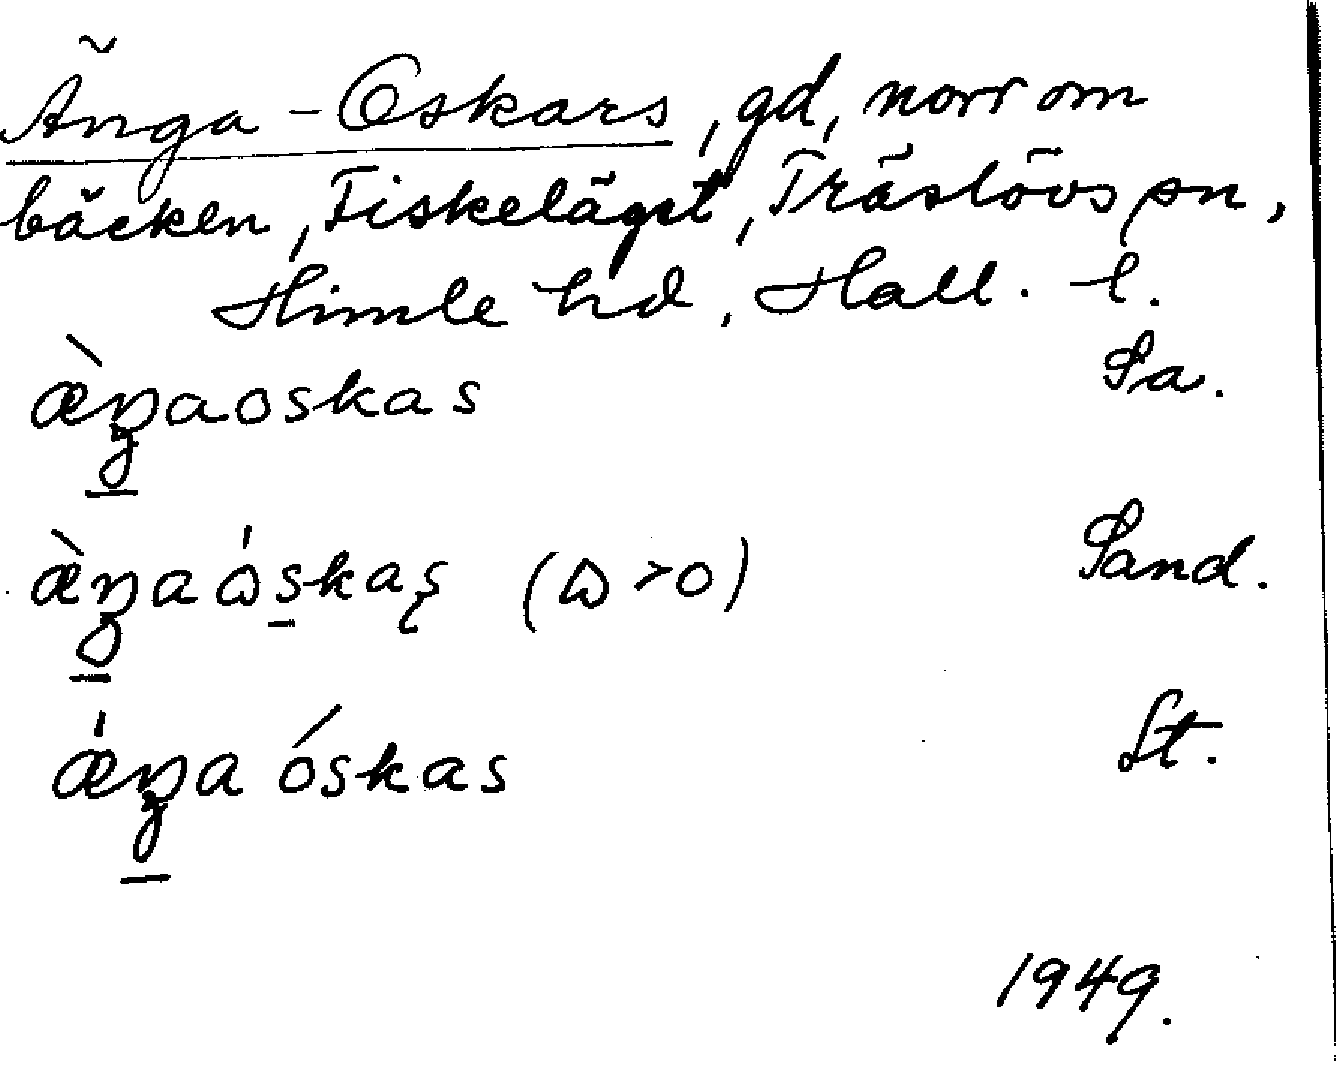 Änga-Oskars, gd, norr om
bäcken, Fiskeläget, Träslövs sn,
Himle hd, Hall. l.
æ̀ŋaoskas Sa.
æ̀ŋaɷ́skas (ɷ>o) Sand.
ǽŋa óskas St.
1949.